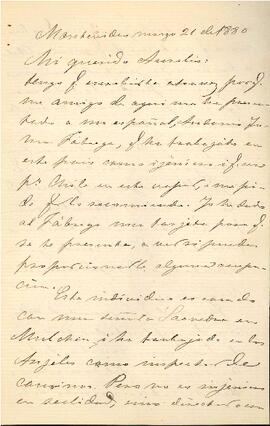 Montevideo marzo 21 de 1880
Mi querido Aurelio:
tengo q escribirte porq
un amigo de aqui me ha presen-
tado a un español, Antonio
Fábrega, q ha trabajado en
este pais como injeniero i q va
pa. Chile en este vapor, i me pi-
de q lo recomiende. Le he dado
al Fábrega una tarjeta para q
se te presente, a ver si puedes
proporcionarle alguna ocupa-
cion.
Este individuo es casado
con una señorita Saavedra en
Mulchen, i ha trabajado en los
Anjeles como inspector de
caminos. Pero no es injeniero
en realidad, sino